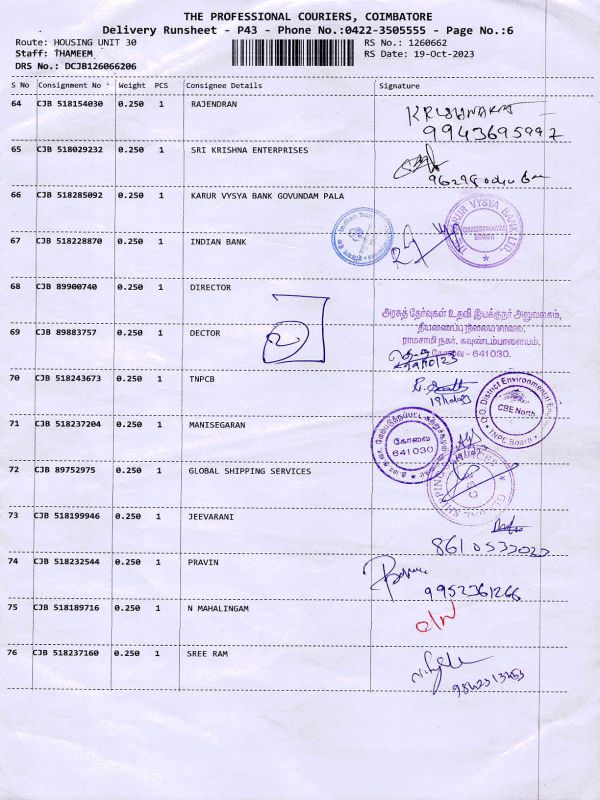 THE PROFESSIONAL COURIERS, COIMBATORE
Delivery Runsheet - P43 - Phone No.:0422-3505555 - Page No.:6
Route: HOUSING UNIT 30 RS No.: 1260662
Staff: THAMEEM RS Date: 19-Oct-2023
DRS No.: DCJB126066206
S No Consignment No Weight PCS Consignee Details Signature
64 CJB 518154030 0.250 1 RAJENDRAN
9943695997
65 CJB 518029232 0.250 1 SRI KRISHNA ENTERPRISES
66 CJB 518285092 0.250 1 KARUR VYSYA BANK GOVUNDAM PALA
KARUR VYSYA BANK LTD
67 CJB 518228870 0.250 1 INDIAN BANK
Indian Bank
68 CJB 89900740 0.250 1 DIRECTOR
அரசுத் தேர்வுகள் உதவி இயக்குநர் அலுவலகம்,
தீயணைப்பு நிலைய சாலை,
69 CJB 89883757 0.250 1 DECTOR
2
ராமசாமி நகர், கவுண்டம்பாளையம்,
கோவை - 641030.
19/10/23
70 CJB 518243673 0.250 1 TNPCB
O/O. District Environmental Engineer
CBE North
TNPC Board
71 CJB 518237204 0.250 1 MANISEGARAN
கோவை
641030
72 CJB 89752975 0.250 1 GLOBAL SHIPPING SERVICES
73 CJB 518199946 0.250 1 JEEVARANI
8610533023
74 CJB 518232544 0.250 1 PRAVIN
9952361266
75 CJB 518189716 0.250 1 N MAHALINGAM
76 CJB 518237160 0.250 1 SREE RAM